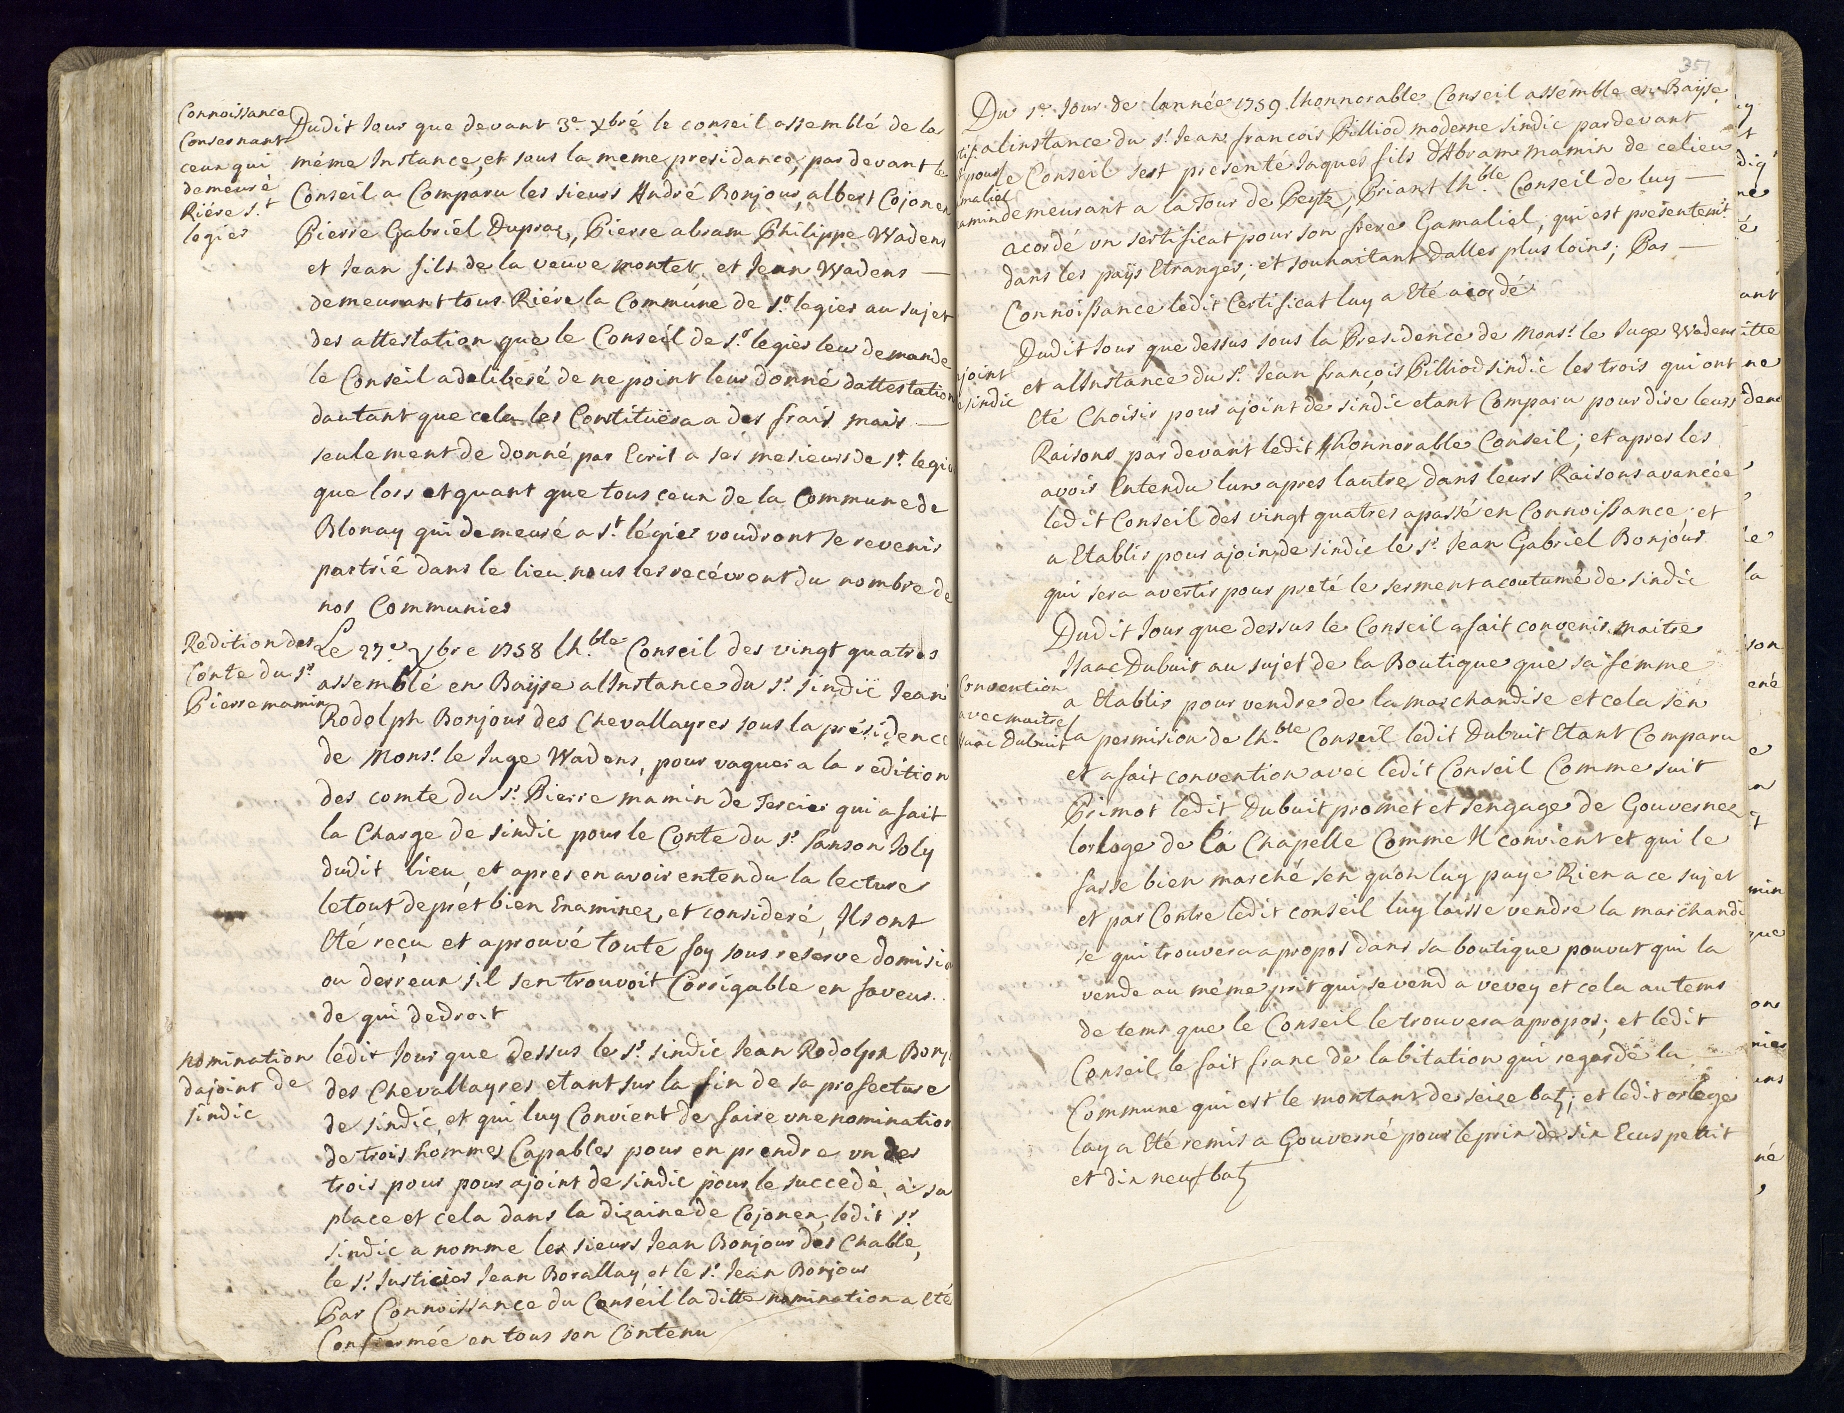 Connoissance
Consernant
ceux qui
demeure
Riére St
legier
Dudit Jour que devant 3e Xbré le conseil assemblé de la
même Instance, et sous la meme presidance, par devant le
Conseil a Comparu les sieurs André Bonjour, albert Cojonex
Pierre Gabriël Dupraz, Pierre abram Philippe Wadens
et Jean fils de la veuve montet et Jean Wadens —
demeurant tous Riére la Commúne de St legier au sujet
des attestation que le Conseil de St legier leu demande
le Conseil a deliberé de ne point leur donné dattestation
dautant que cela les Constituëra a des frais mais —
seulement de donné par Ecrit a ses mesieurs de St legier
que lors et quant que tous ceux de la Commune de
Blonay qui demeuré a St légier voudront se revenir
partrié dans le lieu nous les recévront du nombre de
nos Communier
Redition des
Conte du Sr
Pierre mamin
Le 27e Xbre 1758 lh.ble Conseil des vingt quatres
assemblé en Baÿse alInstance du Sr sindic Jean
Rodolph Bonjour des Chevallayres sous la présidence
de Monsr le Juge Wadens, pour vaquer a la redition
des comte du Sr Pierre mamin de Tercier qui a fait
la Charge de sindic pour le Conte du Sr Sanson Joly
dudit lieu, et apres en avoir entendu la lecture
le tout deprèt bien Examinez, et consideré, Ils ont
Eté reçu et aprouvé toute foy sous reserve domision
ou derreur sil sen trouvoit Corrigable en faveur
de qui de droit
nomination
dajoint de
sindic
ledit Jour que dessus le Sr sindic Jean Rodolph Bonj
des Chevallayres etant sur la fin de sa profecture
de sindic, et qui luy Convient de faire vne nomination
de trois hommes Capables pour en prendre vn des
trois pour pour ajoint de sindic pour le succedé à sa
place et cela dans la dizaine de Cojonex, ledit Sr
sindic a nomme les sieurs Jean Bonjour des Chable,
le Sr Justicier Jean Borallay, et le Sr Jean Bonjour
Par Connoissance du Conseil la ditte nomination a Eté
Confiermée en tous son Contenu
351
Du 1er Jour de lannée 1759 lhonnorable Conseil assemble en Baÿse
alinstance du Sr Jean françois Pilliod moderne sindic pardevant
le Conseil sest présenté Jaques fils dAbram Mamin de ce lieu
demeurant a la Tour de Peytz, Priant lh.ble Conseil de luy —
acordé vn sertificat pour son frere Gamaliel, qui est presentemt
dans les paÿs Etranger, et souhaitant daller plus loins; Par —
Connoissance ledit Certificat luy a Eté acordé
pour
maliel
amin
Dudit Jour que dessus sous la Presidence de Monsr le Juge Wadens
et alInstance du Sr Jean françois Pilliod sindic les trois qui ont
Eté Choisir pour ajoint de sindic etant Comparu pour dire leurs
Raisons par devant ledit honnorable Conseil; et apres les
avoir Entendu lun apres lautre dans leurs Raisons avancée
ledit Conseil des vingt quatres a passé en Connoissance, et
a Etablir pour ajoin de sindic le Sr Jean Gabriel Bonjour
qui sera avertir pour preté le serment acoutumé de sindic
joint
sindic
Dudit Jour que dessus le Conseil a fait convenir maitre
Isaac Dubuit au sujet de la Boutique que sa femme
a etablir pour vendre de la marchandise et cela sen
la permision de lh.ble Conseil ledit Dubuit Etant Comparu
et a fait convention avec ledit Conseil Comme suit
Primot ledit Dubuit promet et sengage de Gouvernez
lorloge de la Chapelle Comme Il convient et qui le
fasse bien marché sen quon luy paye Rien a ce sujet
et par Contre ledit conseil luy laisse vendre la marchandi
se qui trouvera a propos dans sa boutique pouvut qui la
vende au même prit qui se vend a vevey et cela au tems
de tems que le Conseil le trouvera apropos; et ledit
Conseil le fait franc de labitation qui regarde la —
Commune qui est le montant de seize batz; et ledit orloge
luy a Eté remis a Gouverné pour le prix de six Ecus petit
et dix neuf batz
Convention
avec maitre
Isaac Dubuit